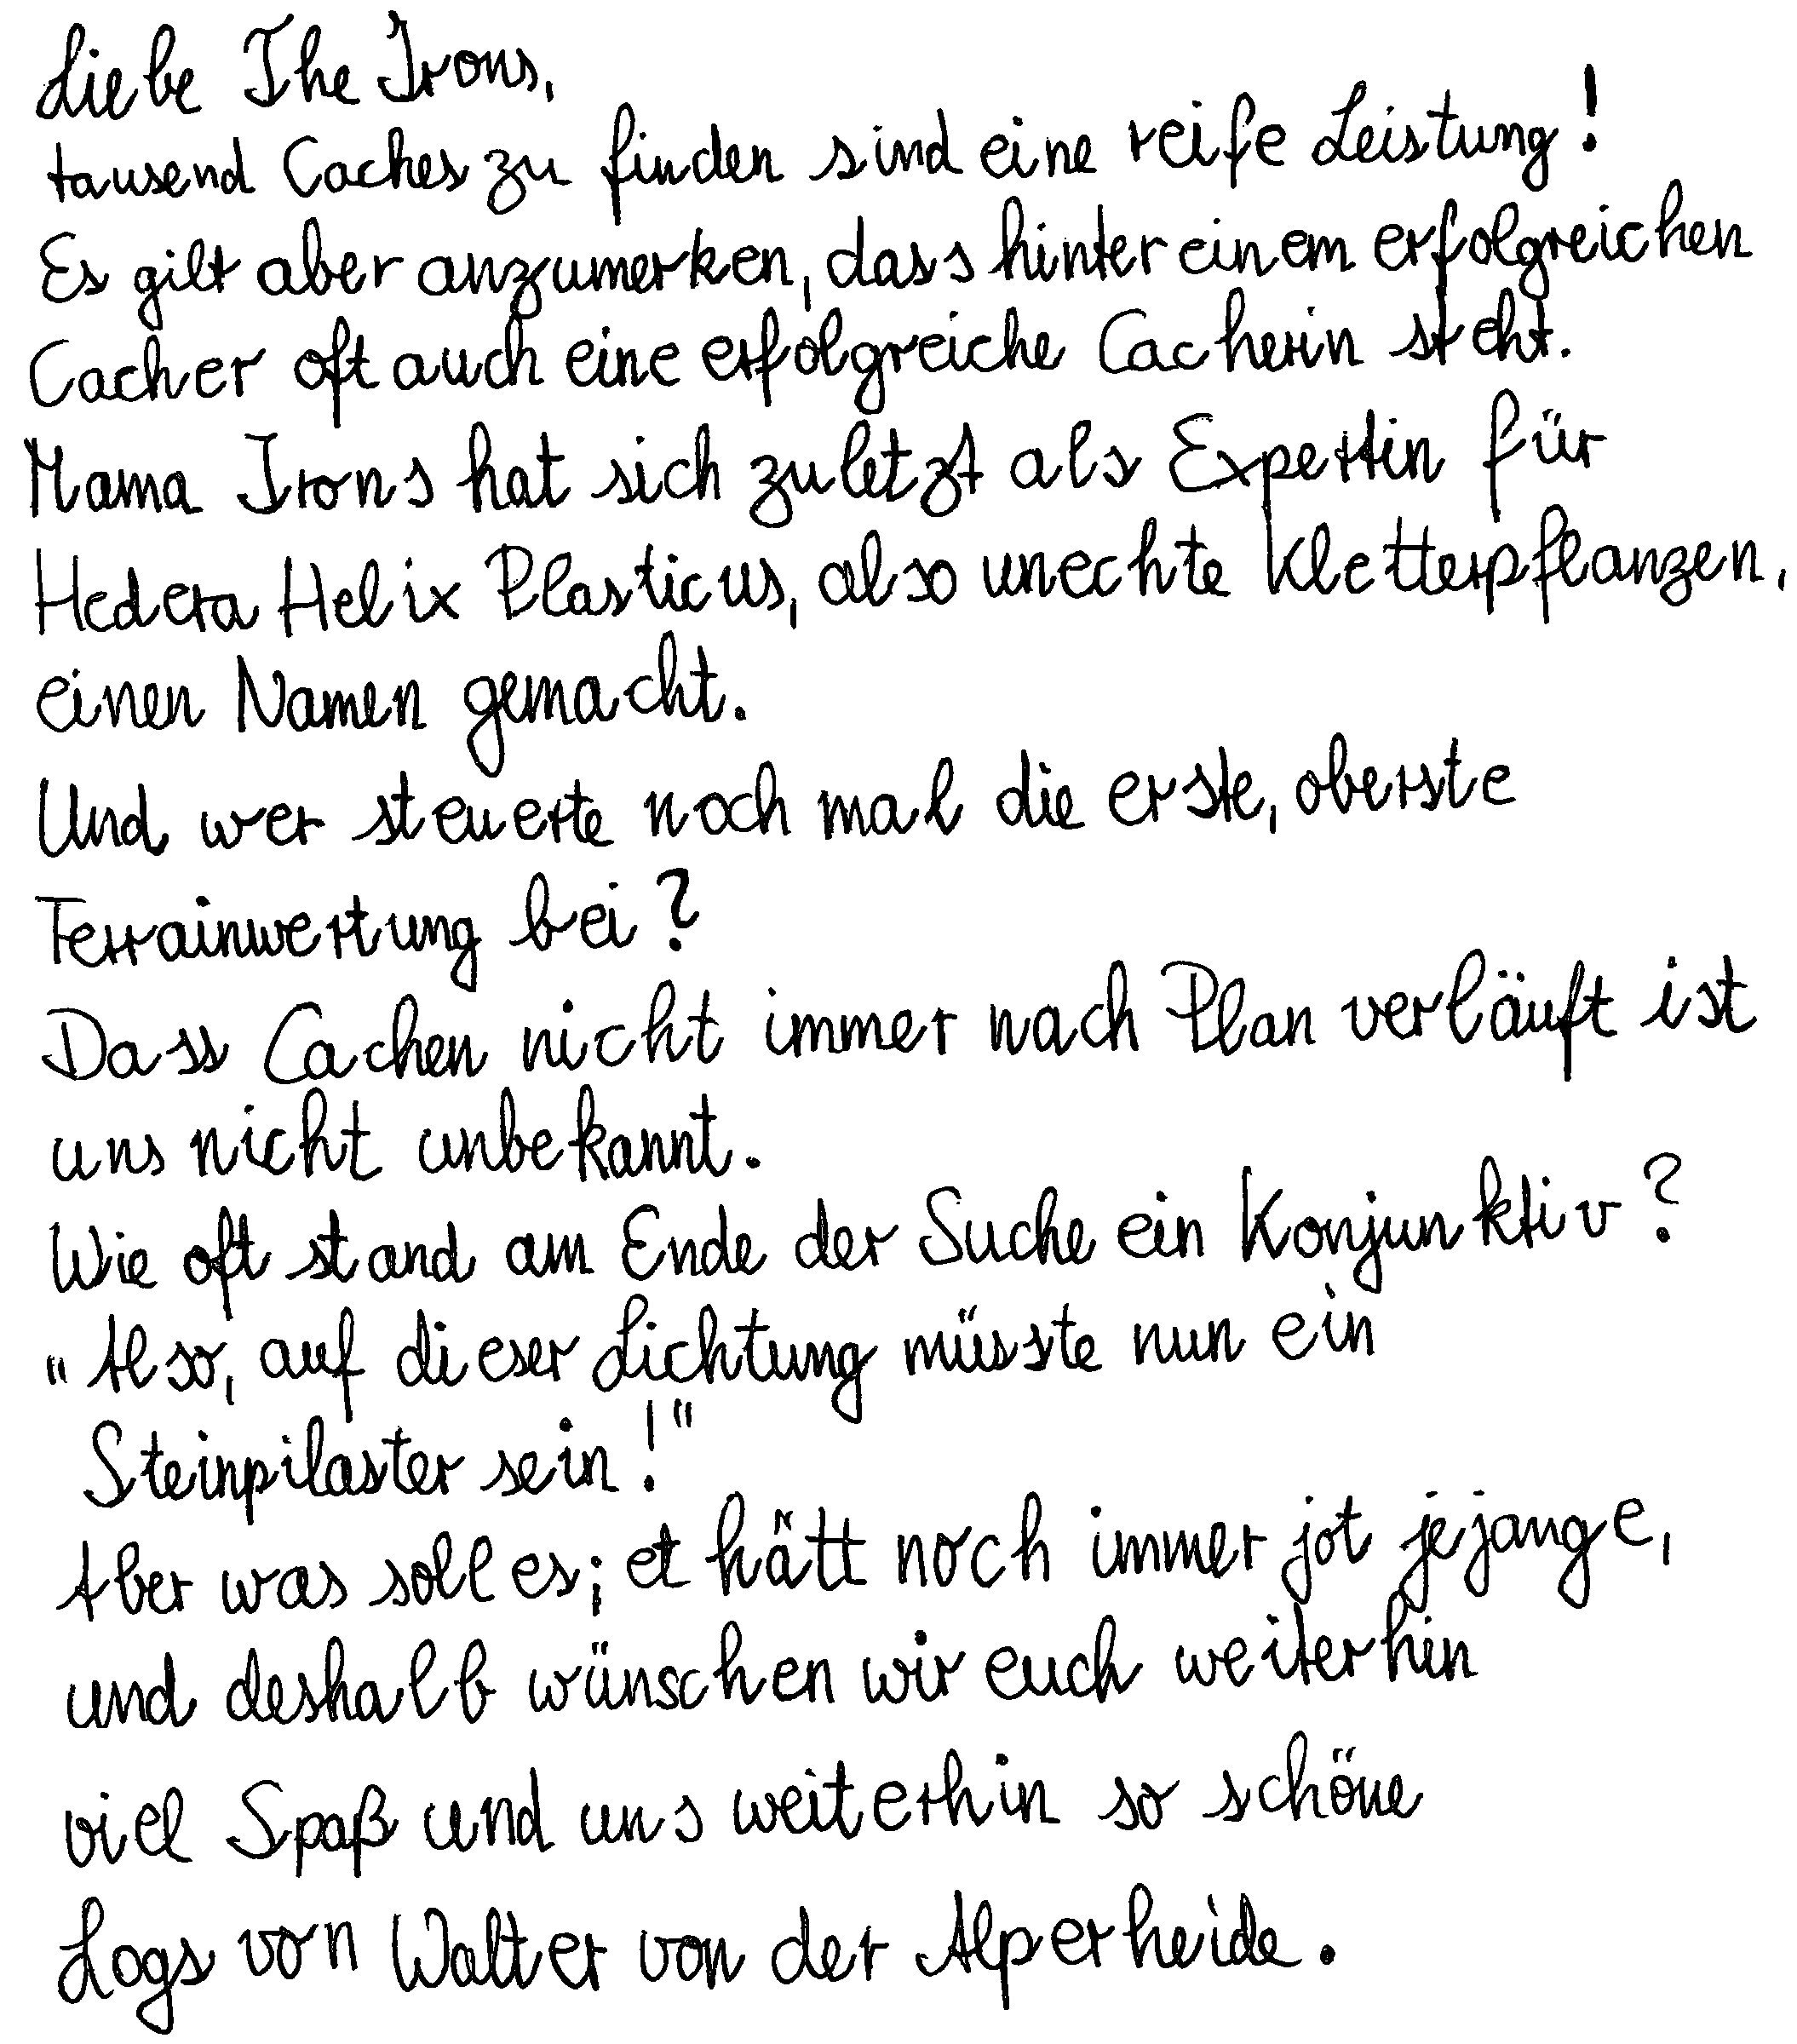 Liebe The Irons,
tausend Caches zu finden sind eine reife Leistung!
Es gilt aber anzumerken, dass hinter einem erfolgreichen
Cacher oft auch eine erfolgreiche Cacherin steht.
Mama Irons hat sich zuletzt als Expertin für
Hedera Helix Plasticus, also unechte Kletterpflanzen,
einen Namen gemacht.
Und wer steuerte noch mal die erste, oberste
Terrainwertung bei?
Dass Cachen nicht immer nach Plan verläuft ist
uns nicht unbekannt.
Wie oft stand am Ende der Suche ein Konjunktiv?
"Also, auf dieser Lichtung müsste nun ein
Steinpilaster sein!"
Aber was soll es; et hätt noch immer jot jejange,
und deshalb wünschen wir euch weiterhin
viel Spaß und uns weiterhin so schöne
Logs von Walter von der Alperheide.